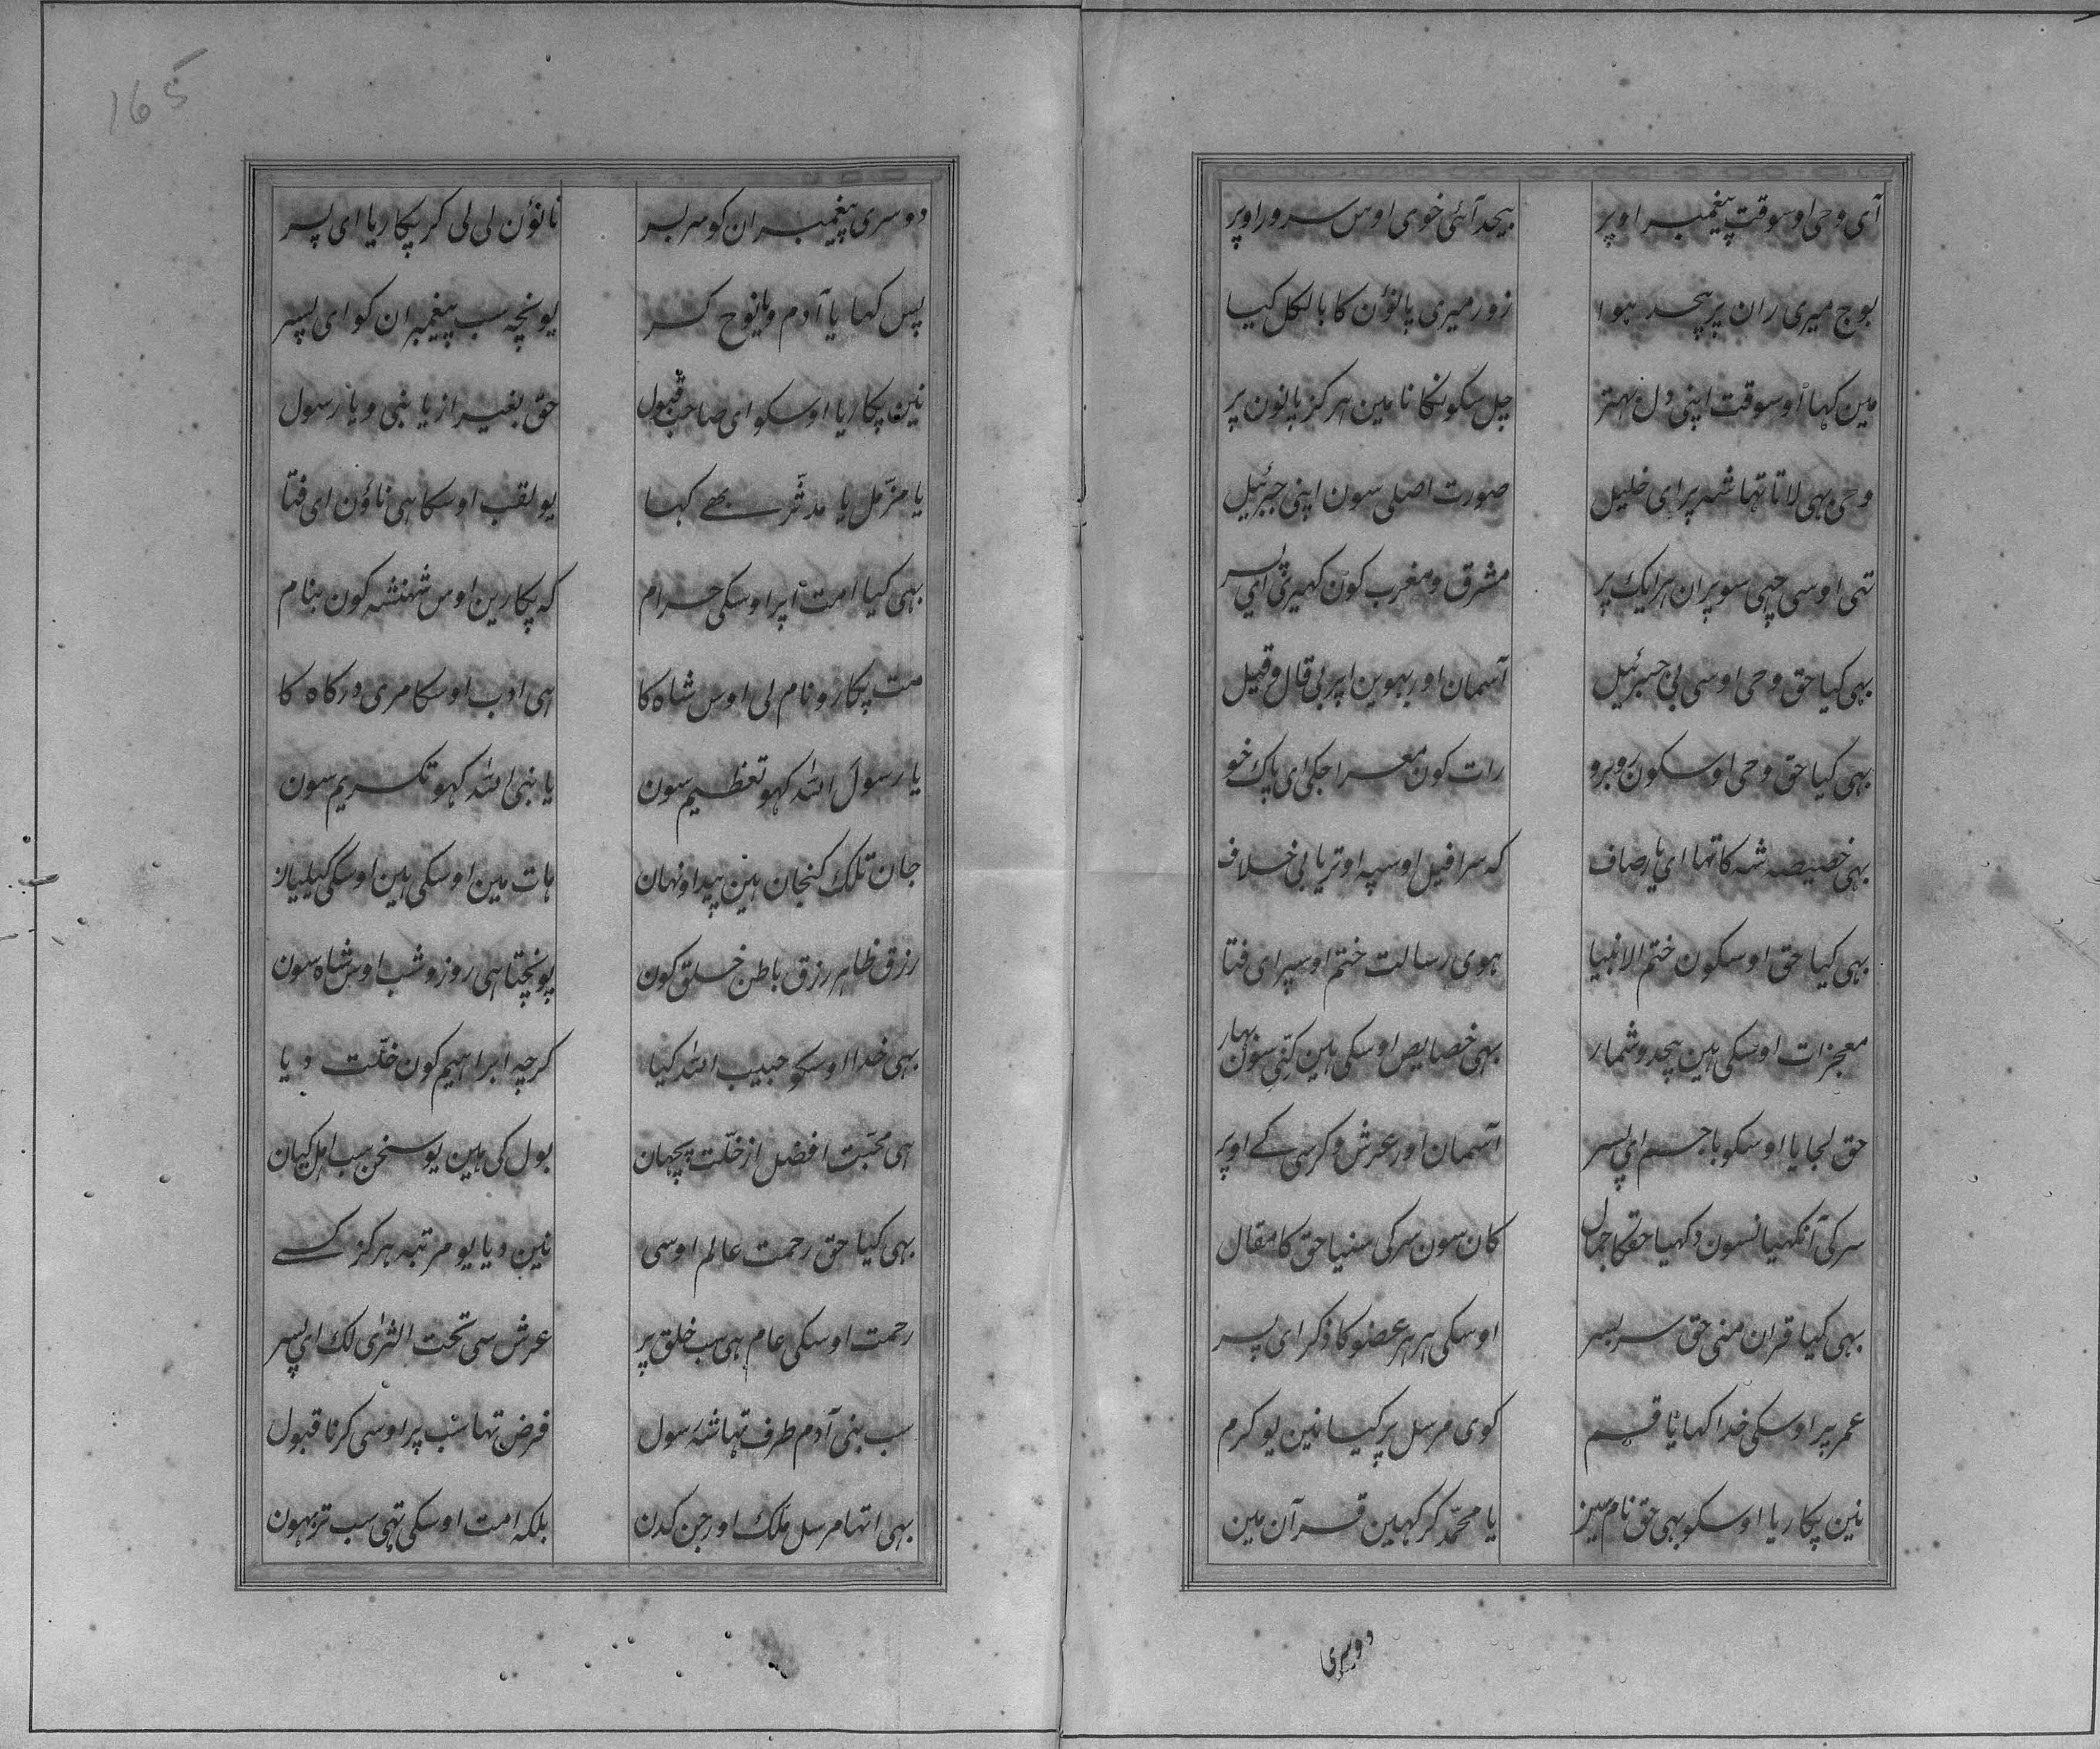 آی وحی اوسوقت پیغمبر اوپر بیحد آئی خوی اوس سرور اوپر
بوج میری ران پر بیحد ہوا زور میری پانوٴن کا بالکل کیا
مین کہا اوسوقت اپنی دل بہتر چل سکونکا نا مین ہرکز پانون پر
وحی بہی لاتا تہا شہ پر ای خلیل صورت اصلی سون اپنی جبرئیل
تہی اوسی چہی سو پران ہر ایک پر مشرق و مغرب کون کہیری ای پسر
بہی کیا حق وحی اوسی بی جبرئیل آسمان اور بہوین اپر بی قال و قیل
بہی کیا حق وحی اوسکون روبرو رات کون معراجکی ای پاک خو
بہی خصیصہ شہ کا تہا ای یار صاف کہ سرافیل اوسپہ اوتریا بی خلاف
بہی کیا حق اوسکون ختم الانبیا ہوی رسالت ختم اوسپر ای فتا
معجزات اوسکی ہین بیحد و شمار بہی خصایص اوسکی ہین کنتی سون بہار
حق لجایا اوسکو با جسم ای پسر آسمان اور عرش و کرسی کے اوپر
سر کی آنکہیانسون دکہیا حقکا جمال کان سون سر کی سنیا حق کا مقال
بہی کیا قران منی حق سربسر اوسکی ہر ہر عضو کا ذکر ای پسر
عمر پر اوسکی خدا کہایا قسم کوی مرسل پر کیا نین یو کرم
نین پکاریا اوسکو بہی حق نام سین یا محمّد کر کہین قرآن مین
دوسری
165
دوسری پیغمبران کو سربسر نانوٴن لی لی کر پکاریا ای پسر
پس کہا یا آدم و یا نوح کر یونچہ سب پیغمبران کو ای پسر
نین پکاریا اوسکو ای صاحب قبول حق بغیر از یا نبی و یا رسول
یا مزّمل یا مدثّر بھے کہا یو لقب اوسکا ہی ناوٴن ای فتا
بہی کیا امت اپر اوسکی حرام کہ پکارین اوس شہنشہ کون بنام
مت پکارو نام لی اوس شاہ کا ہی ادب اوسکا مری درکاہ کا
یا رسول اللہ کہو تعظیم سون یا نبی اللہ کہو تکریم سون
جان تلک کنجان ہین پیدا و نہان ہات مین اوسکی ہین اوسکی کیلیان
رزق ظاہر رزق باطن خلق کون پونچتا ہی روز و شب اوس شاہ سون
بہی خدا اوسکو حبیب اللہ کیا کرچہ ابراہیم کون خلّت دیا
ہی محبّت افضل از خلّت پچہان بول کی ہین یو سخن سب اہل کیان
بہی کیا حق رحمت عالم اوسی نین دیا یو مرتبہ ہرکز کسے
رحمت اوسکی عام ہی سب خلق پر عرش سی تحت الثریٰ لک ای پسر
سب بنی آدم طرف تہا شہ رسول فرض تہا سب پر اوسی کرنا قبول
بہی اتہا مرسل ملک اور جن کدن بلکہ امت اوسکی تہی سب